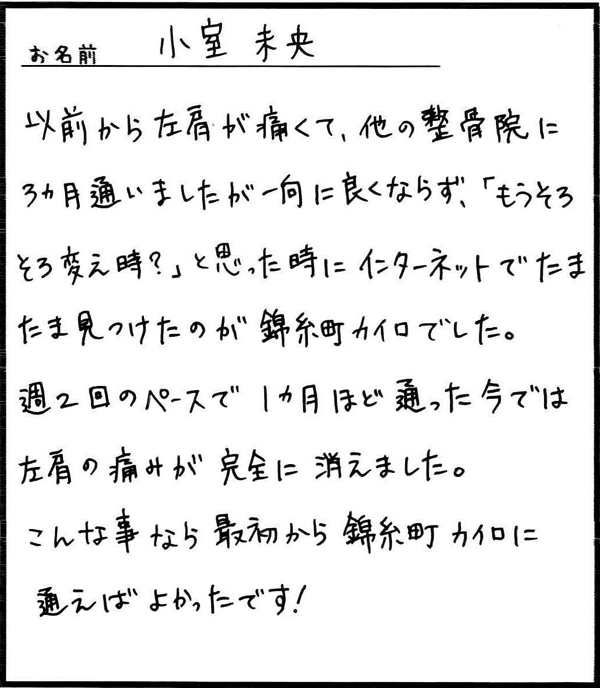 お名前 小室 未央
以前から左肩が痛くて、他の整骨院に
3カ月通いましたが一向に良くならず、「もうそろ
そろ変え時?」と思った時にインターネットでたま
たま見つけたのが錦糸町カイロでした。
週2回のペースで1カ月ほど通った今では
左肩の痛みが完全に消えました。
こんな事なら最初から錦糸町カイロに
通えばよかったです!